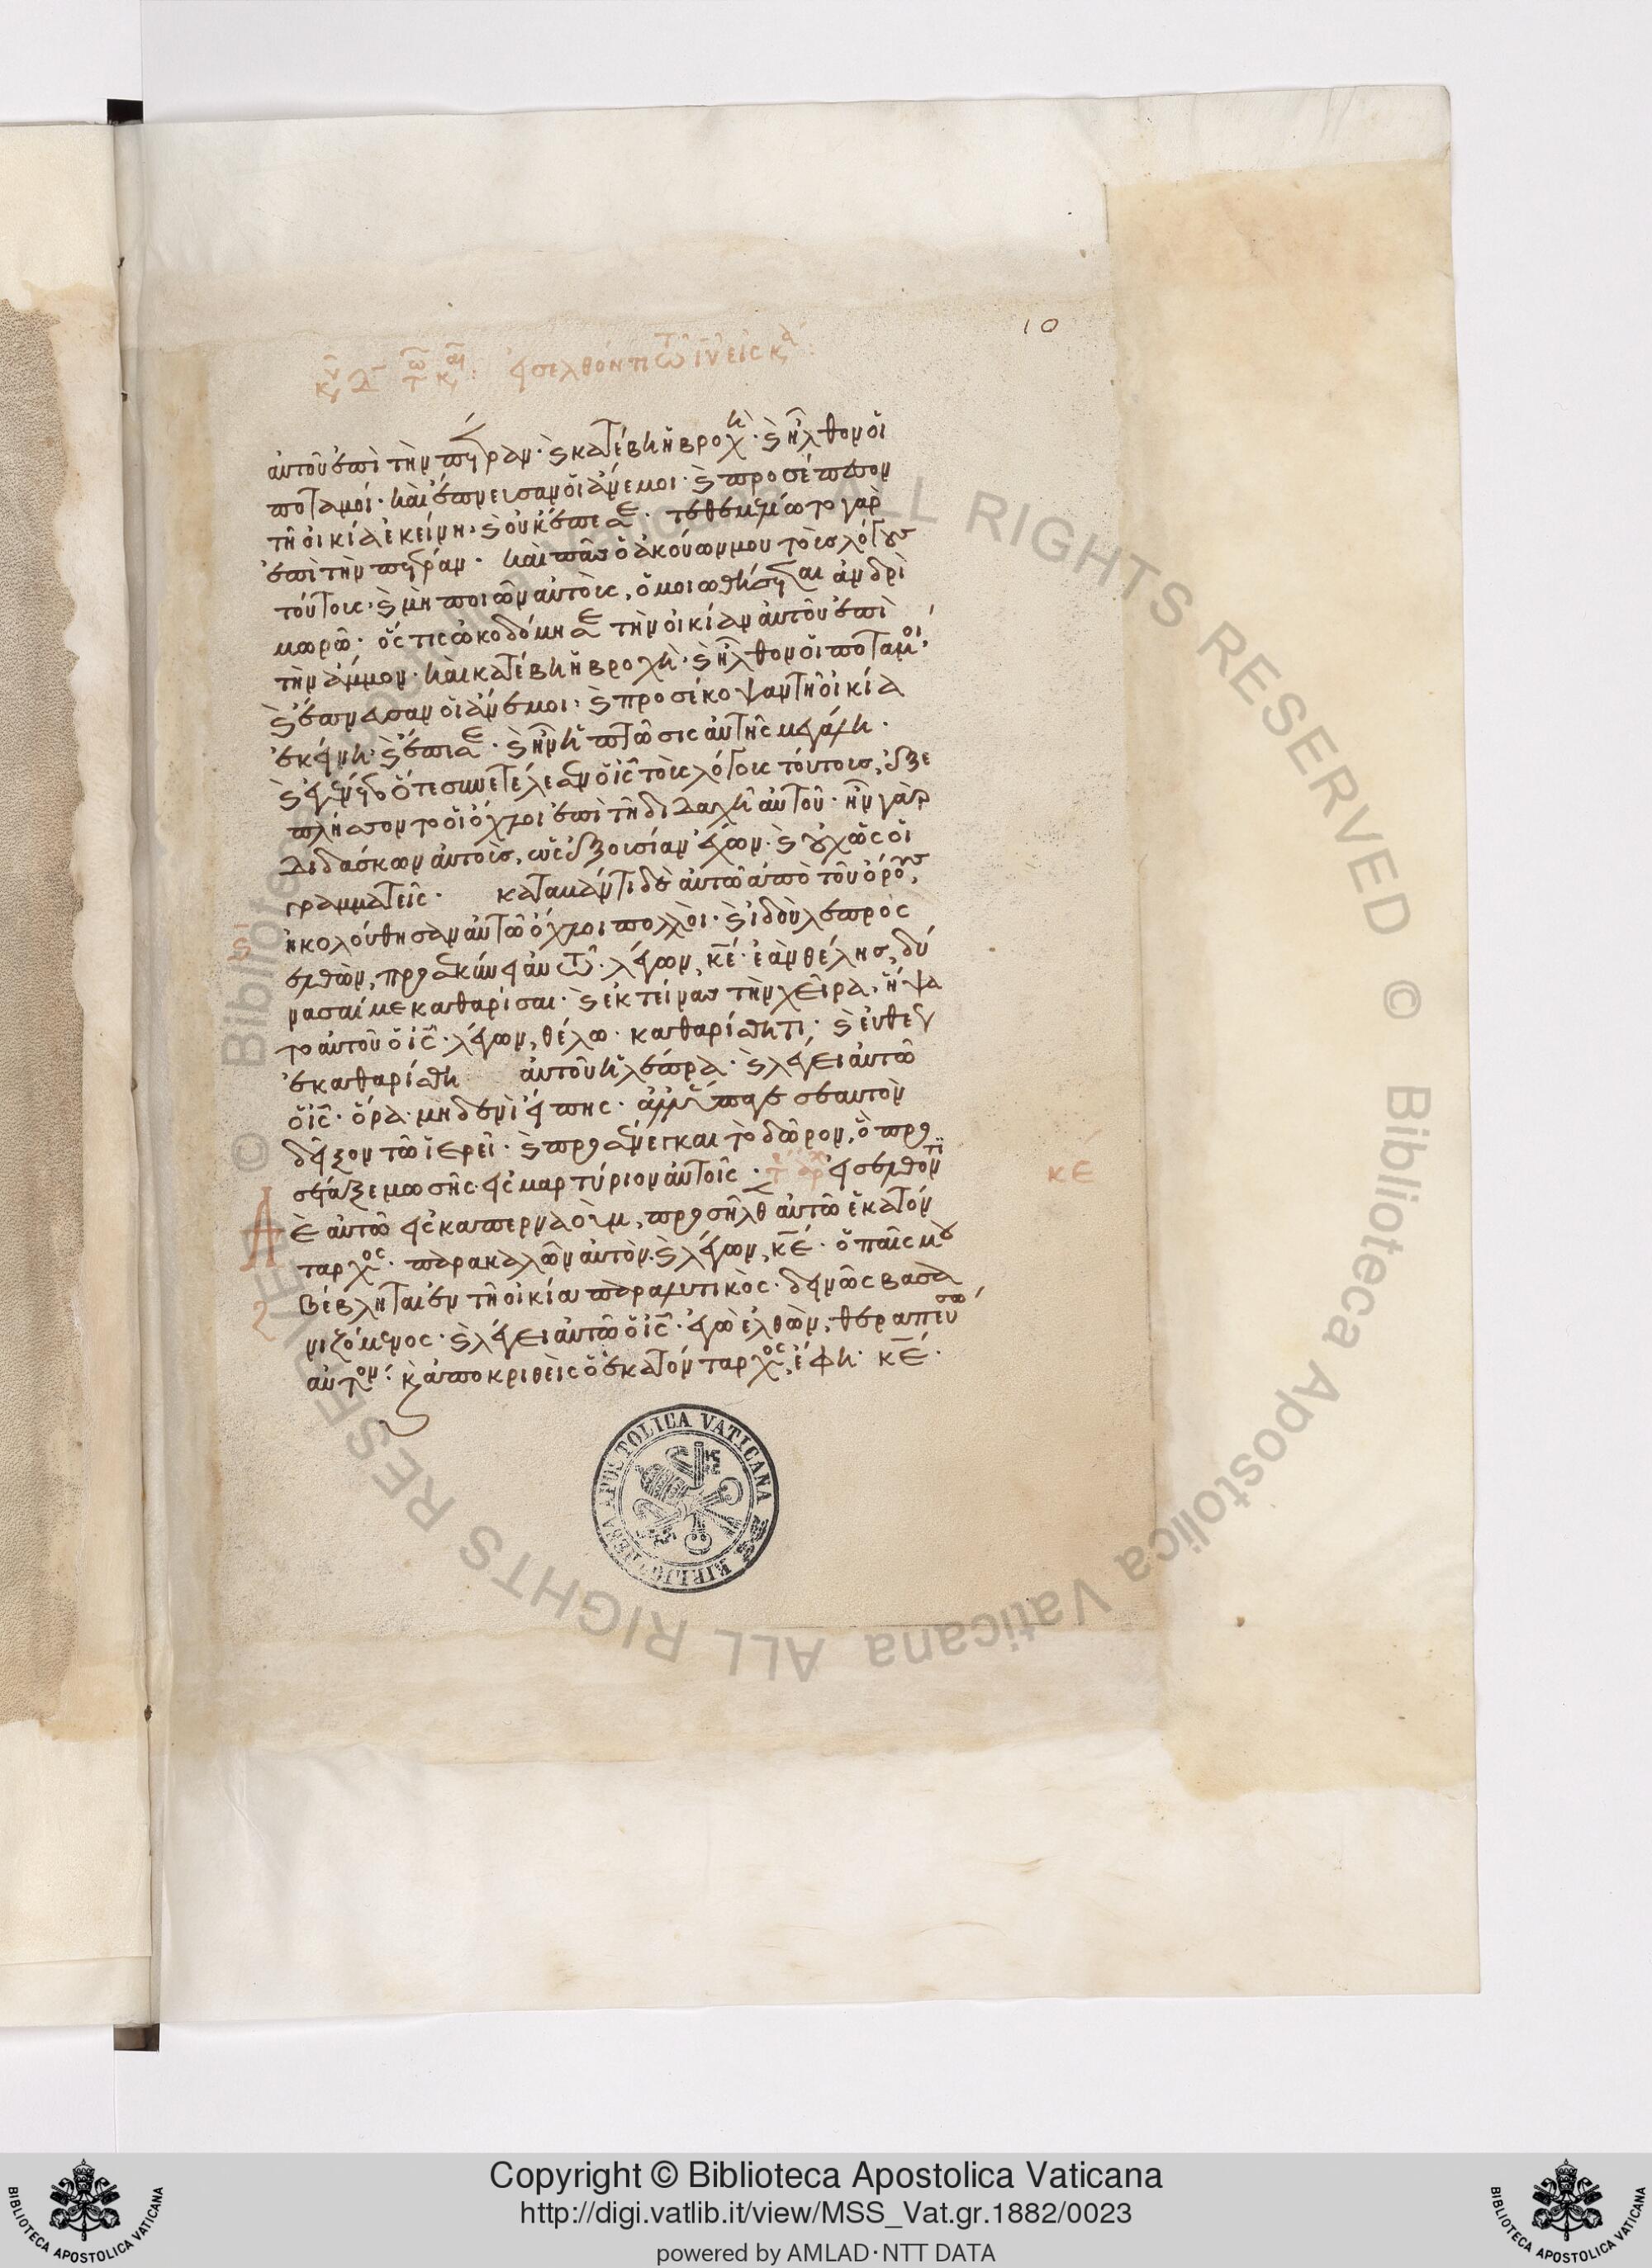 10
αὐτοῦ ἐπὶ τὴν πέτραν· καὶ κατέβη ἡ βροχὴ· καὶ ἦλθον οἱ
ποταμοί· καὶ ἔπνευσαν οἱ ἄνεμοι· καὶ προσέπεσον
τῇ οἰκίᾳ ἐκείνῃ, καὶ οὐκ ἔπεσε· τεθεμελίωτο γὰρ
ἐπὶ τὴν πέτραν· καὶ πᾶς ὁ ἀκούων μου τοὺς λόγους
τούτους, καὶ μὴ ποιῶν αὐτοὺς, ὁμοιωθήσεται ἀνδρὶ
μωρῷ· ὅστις ὠκοδόμησε τὴν οἰκίαν αὐτοῦ ἐπὶ
τὴν ἄμμον· καὶ κατέβη ἡ βροχὴ· καὶ ἦλθον οἱ ποταμοί,
καὶ ἔπνευσαν οἱ ἄνεμοι· καὶ προσέκοψαν τῇ οἰκίᾳ
ἐκείνῃ· καὶ ἔπεσε· καὶ ἦν ἡ πτῶσις αὐτῆς μεγάλη·
καὶ ἐγένετο ὅτε συνετέλεσεν ὁ ις τοὺς λόγους τούτους, ἐξε
πλήσσοντο οἱ ὄχλοι ἐπὶ τῇ διδαχῇ αὐτοῦ· ἦν γὰρ
διδάσκων αὐτοὺς, ὡς ἐξουσίαν ἔχων· καὶ οὐχ ὡς οἱ
γραμματεῖς· καταβάντι δὲ αὐτῷ ἀπὸ τοῦ ὄρους,
ἠκολούθησαν αὐτῷ ὄχλοι πολλοὶ· καὶ ἰδοὺ λεπρὸς
ἐλθὼν, προσεκύνει αὐτῷ· λέγων, κε· ἐὰν θέλῃς, δύ
νασαί με καθαρίσαι· καὶ ἐκτείνας τὴν χεῖρα, ἥψα
το αὐτοῦ ὁ ις· λέγων, θέλω· καθαρίσθητι· καὶ εὐθέως
ἐκαθαρίσθη αὐτοῦ ἡ λέπρα· καὶ λέγει αὐτῷ
ὁ ις· ὅρα· μηδενὶ εἴπῃς· ἀλλ' ὕπαγε σεαυτὸν
δεῖξον τῷ ἱερεῖ· καὶ προσένεγκαι τὸ δῶρον, ὃ προσ
έταξε μωσῆς εἰς μαρτύριον αὐτοῖς· εἰσελθόντι
δὲ αὐτῷ εἰς καπερναοὺμ, προσῆλθεν αὐτῷ ἑκατόν
ταρχος· παρακαλῶν αὐτὸν· καὶ λέγων, κε· ὁ παῖς μου
βέβληται ἐν τῇ οἰκίᾳ παραλυτικὸς· δεινῶς βασα
νιζόμενος· καὶ λέγει αὐτῷ ὁ ις· ἐγὼ ἐλθὼν, θεραπεύσω
αὐτόν: καὶ ἀποκριθεὶς ὁ ἑκατόνταρχος, ἔφη· κε·
κε
BIBLIOTHECA APOSTOLICA VATICANA
© Biblioteca Apostolica Vaticana ALL RIGHTS RESERVED © Biblioteca Apostolica Vaticana ALL RIGHTS RESERVED
Copyright © Biblioteca Apostolica Vaticana
http://digi.vatlib.it/view/MSS_Vat.gr.1882/0023
powered by AMLAD·NTT DATA
BIBLIOTECA APOSTOLICA VATICANA
BIBLIOTECA APOSTOLICA VATICANA